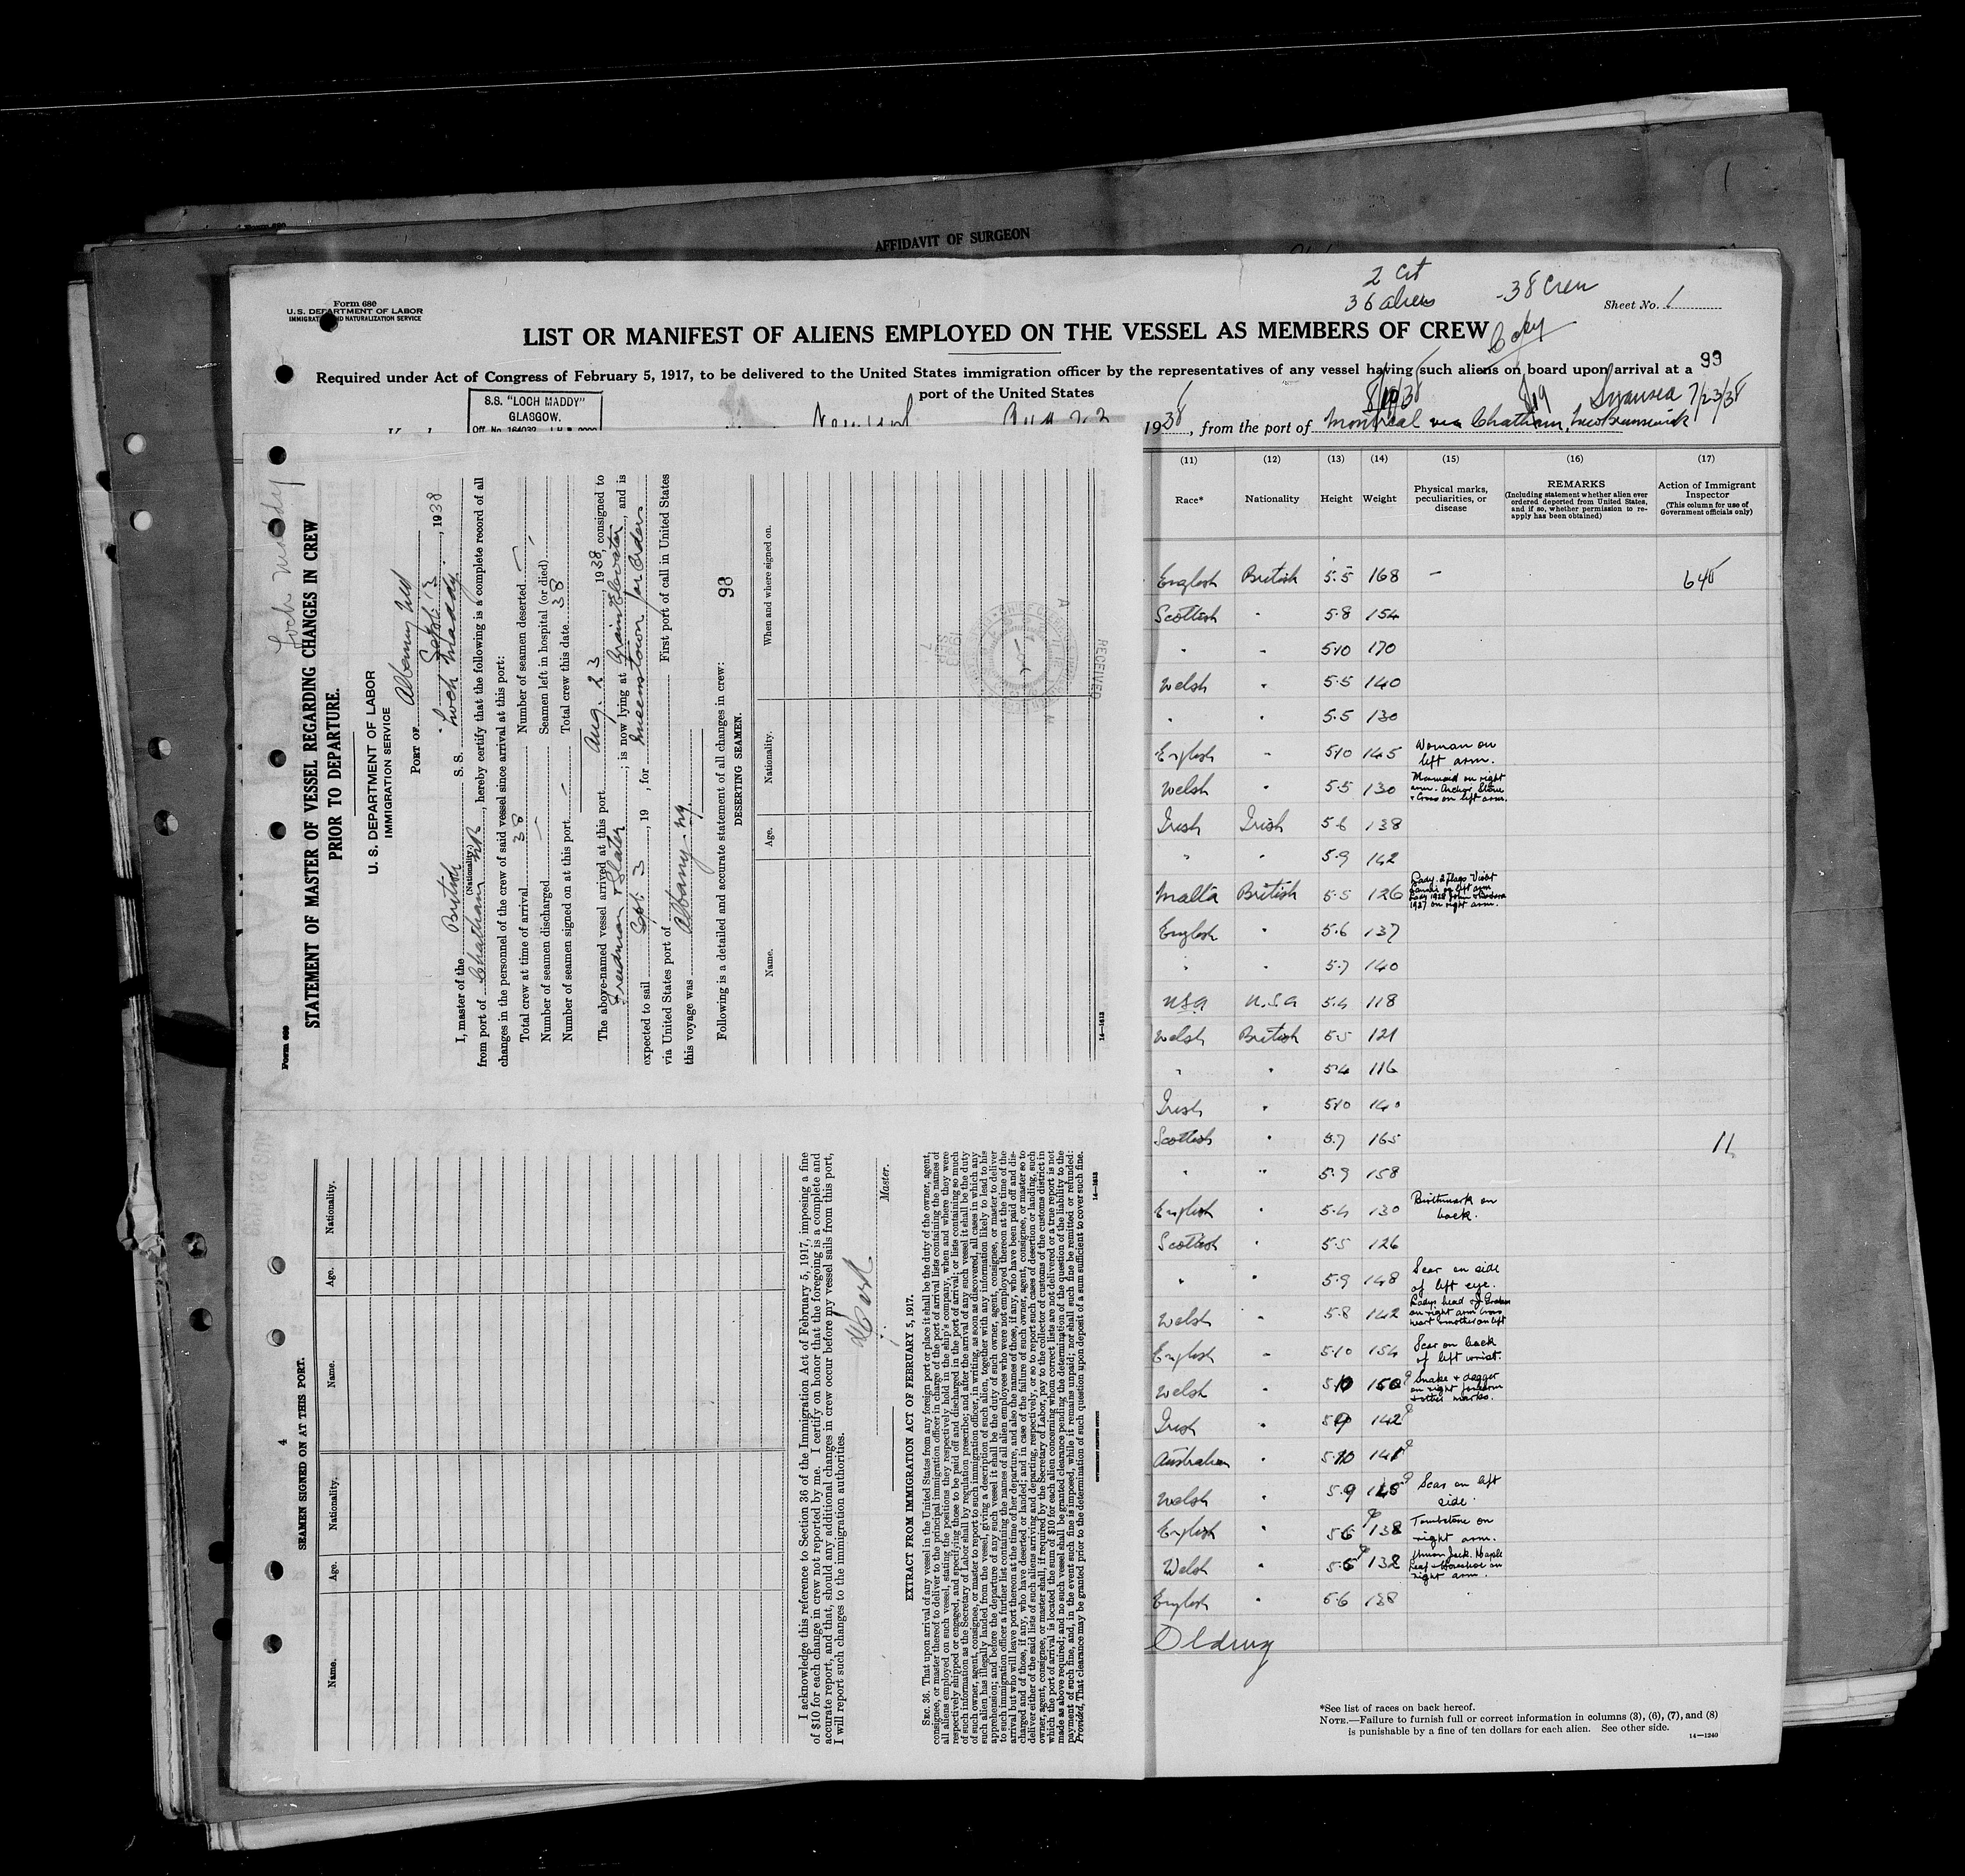 AFFIDAVIT OF SURGEON
Form 680
U.S. DEPARTMENT OF LABOR
IMMIGRATION AND NATURALIZATION SERVICE
2 Cit
36 aliens
-38 Crew
Sheet No. 1
LIST OR MANIFEST OF ALIENS EMPLOYED ON THE VESSEL AS MEMBERS OF CREW
Copy
Required under Act of Congress of February 5, 1917, to be delivered to the United States immigration officer by the representatives of any vessel having such aliens on board upon arrival at a
port of the United States
99
S.S. "LOCH MADDY"
GLASGOW.
8/19 Swansea 7/23/38
1938, from the port of Montreal via Chatham, New Brunswick
(11) (12) (13) (14) (15) (16) (17)
Race* Nationality Height Weight Physical marks, peculiarities, or disease REMARKS (Including statement whether alien ever ordered deported from United States, and if so, whether permission to reapply has been obtained) Action of Immigrant Inspector (This column for use of Government officials only)
English British 5.5 168 -
Scottish " 5.8 154
" " 5.10 170
Welsh " 5.5 140
" " 5.5 130
English " 5.10 145 Woman on left arm.
Welsh " 5.5 130 Mermaid on right arm. Anchor + Cross on left arm.
Irish Irish 5.6 138
" " 5.9 142
Malta British 5.5 126 Lady. 2 flags on left arm 1927 on right arm.
English " 5.6 137
" " 5.7 140
USA U.S.A 5.4 118
Welsh British 5.5 121
" " 5.4 116
Irish " 5.10 140
Scottish " 5.7 165 11
" " 5.9 158
English " 5.4 130 Birthmark on back.
Scottish " 5.5 126
" " 5.9 148 Scar on side of left eye.
Welsh " 5.8 142 Ladys head on right arm Cross heart on left
English " 5.10 154 Scar on back of left wrist.
Welsh " 5.10 150 Snake + dagger on right forearm + other marks.
Irish " 5.9 142
Australian " 5.10 141
Welsh " 5.9 Scar on left side.
English " 5.6 138 Tombstone on right arm.
Welsh " 5.6 132 Union Jack. Maple Leaf + Horseshoe on right arm.
English " 5.6 138
*See list of races on back hereof.
NOTE.—Failure to furnish full or correct information in columns (3), (6), (7), and (8)
is punishable by a fine of ten dollars for each alien. See other side.
14—1240
Loch Maddy
Form 689
STATEMENT OF MASTER OF VESSEL REGARDING CHANGES IN CREW
PRIOR TO DEPARTURE.
U. S. DEPARTMENT OF LABOR
IMMIGRATION SERVICE
PORT OF Albany N.Y.
Sept. 3, 1938
I, master of the British S. S. Loch Maddy
(Nationality.)
from port of Chatham NB, hereby certify that the following is a complete record of all
changes in the personnel of the crew of said vessel since arrival at this port:
Total crew at time of arrival 38 Number of seamen deserted —
Number of seamen discharged — Seamen left in hospital (or died) —
Number of seamen signed on at this port — Total crew this date 38
The above-named vessel arrived at this port Aug. 23, 1938, consigned to
Freedman & Slater; is now lying at Grain Elevator, and is
expected to sail Sept. 3, 19 , for Queenstown for Orders
via United States port of First port of call in United States
this voyage was Albany. N.Y.
Following is a detailed and accurate statement of all changes in crew: 98
DESERTING SEAMEN.
Name. Age. Nationality. When and where signed on.
RECEIVED
14—1613
4
SEAMEN SIGNED ON AT THIS PORT.
Name. Age. Nationality. Name. Age. Nationality.
I acknowledge this reference to Section 36 of the Immigration Act of February 5, 1917, imposing a fine
of $10 for each change in crew not reported by me. I certify on honor that the foregoing is a complete and
accurate report, and that, should any additional changes in crew occur before my vessel sails from this port,
I will report such changes to the immigration authorities.
Master.
EXTRACT FROM IMMIGRATION ACT OF FEBRUARY 5, 1917.
SEC. 36. That upon arrival of any vessel in the United States from any foreign port or place it shall be the duty of the owner, agent,
consignee, or master thereof to deliver to the principal immigration officer in charge of the port of arrival lists containing the names of
all aliens employed on such vessel, stating the positions they respectively hold in the ship's company, when and where they were
respectively shipped or engaged, and specifying those to be paid off and discharged in the port of arrival; or lists containing so much
of such information as the Secretary of Labor shall by regulation prescribe; and after the arrival of any such vessel it shall be the duty
of such owner, agent, consignee, or master to report to such immigration officer, in writing, as soon as discovered, all cases in which any
such alien has illegally landed from the vessel, giving a description of such alien, together with any information likely to lead to his
apprehension; and before the departure of any such vessel it shall be the duty of such owner, agent, consignee, or master to deliver
to such immigration officer a further list containing the names of all alien employees who were not employed thereon at the time of the
arrival but who will leave port thereon at the time of her departure, and also the names of those, if any, who have been paid off and dis-
charged and of those, if any, who have deserted or landed; and in case of the failure of such owner, agent, consignee, or master so to
deliver either of the said lists of such aliens arriving and departing, respectively, or so to report such cases of desertion or landing, such
owner, agent, consignee, or master shall, if required by the Secretary of Labor, pay to the collector of customs of the customs district in
which the port of arrival is located the sum of $10 for each alien concerning whom correct lists are not delivered or a true report is not
made as above required; and no such vessel shall be granted clearance pending the determination of the question of the liability to the
payment of such fine, and, in the event such fine is imposed, while it remains unpaid; nor shall such fine be remitted or refunded:
Provided, That clearance may be granted prior to the determination of such question upon deposit of a sum sufficient to cover such fine.
14—1613